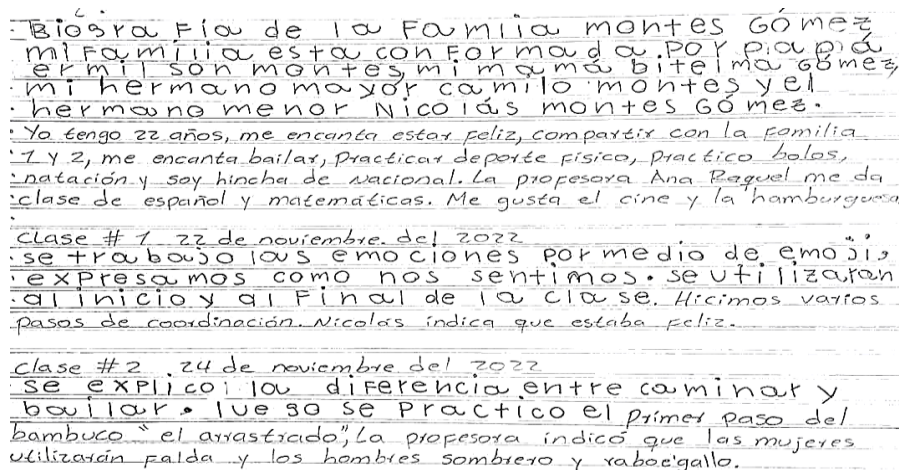 Biografía de la Familia montes Gómez
mi Familia esta conFormada por papá
ermilson montes, mi mamá bitelma Gómez,
mi hermano mayor camilo montes y el
hermano menor Nicolás montes Gómez.
Yo tengo 22 años, me encanta estar Feliz, compartir con la Familia
1 y 2, me encanta bailar, practicar deporte Físico, practico bolos,
natación y soy hincha de Nacional. La profesora Ana Raquel me da
clase de español y matemáticas. Me gusta el cine y la hamburguesa
clase # 1 22 de noviembre. del 2022
se trabajo las emociones por medio de emoji,
expresamos como nos sentimos. se utilizaran
al inicio y al Final de la clase. Hicimos varios
pasos de coordinación. Nicolás indica que estaba Feliz.
clase # 2 24 de noviembre del 2022
se explico: la diFerencia entre caminar y
bailar. luego se practico el primer paso del
bambuco "el arrastrado", La profesora indicó que las mujeres
utilizarán Falda y los hombres sombrero y raboe'gallo.